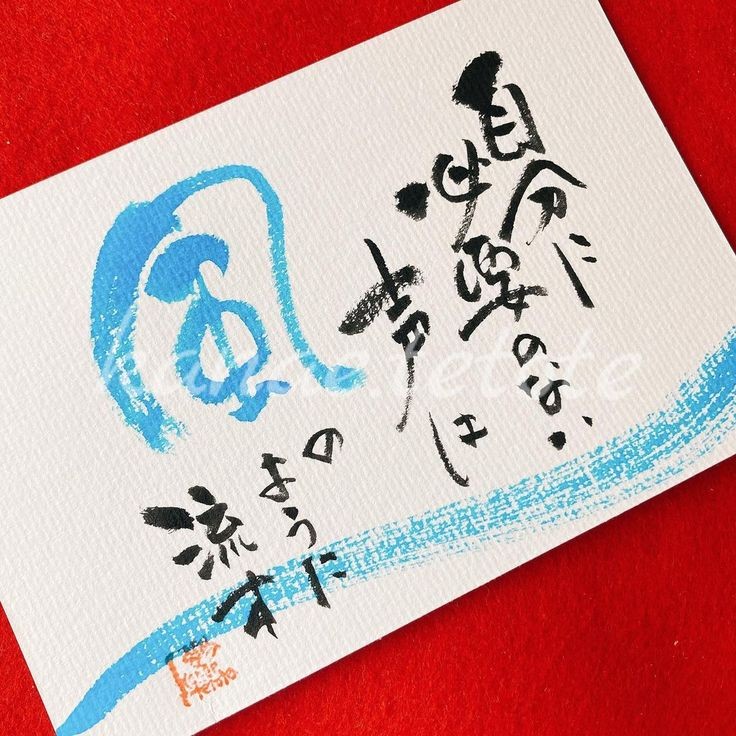 自分に
必要のない
声は
風
のように
流す
kanae.tetote